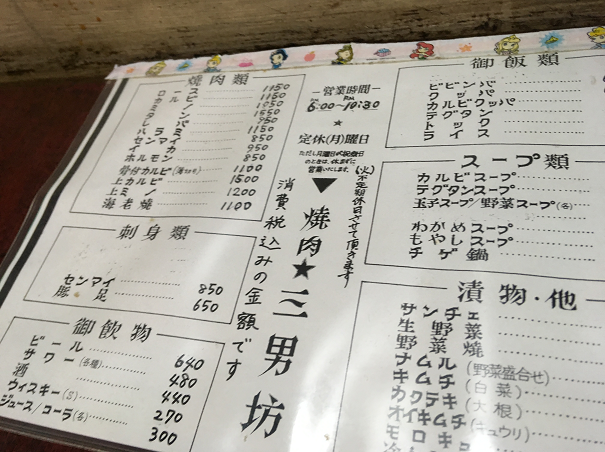 焼肉類
ロース 1150
カルビ 1150
ミノ 1050
タン 1550
レバ 950
ハラミ 1150
センマイ 850
イカ 950
ホルモン 850
骨付カルビ 1100
上カルビ 1500
上ミノ 1200
海老焼 1100
刺身類
センマイ 850
豚足 650
御飲物
ビール 640
サワー(各種) 480
酒 440
ウィスキー(S) 270
ジュース/コーラ(各) 300
営業時間
PM 6:00~PM 10:30
★
定休(月)曜日
ただし月曜日が祝祭日
のときは、休まずに
営業いたします。
(火)不定期休日させて頂きます
▼焼肉★三男坊
消費税込みの金額です
御飯類
ビビンバ
クッパ
カルビクッパ
テグタン
トック
ライス
スープ類
カルビスープ
テグタンスープ
玉子スープ/野菜スープ(各)
わかめスープ
もやしスープ
チゲ鍋
漬物・他
サンチェ
生野菜
野菜焼
ナムル(野菜盛合せ)
キムチ(白菜)
カクテキ(大根)
オイキムチ(キュウリ)
モロキ